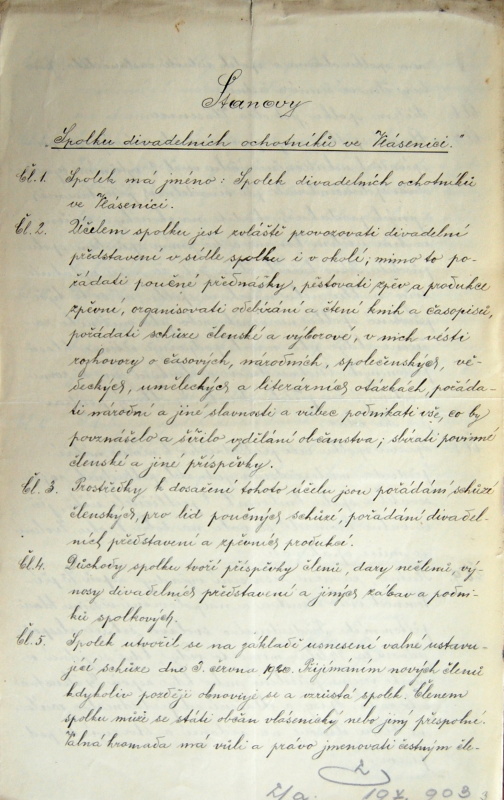 Stanovy
„Spolku divadelních ochotníků ve Vlásenici."
Čl. 1. Spolek má jméno: Spolek divadelních ochotníků
ve Vlásenici.
Čl. 2. Účelem spolku jest zvláště provozovati divadelní
představení v sídle spolku i v okolí; mimo to po-
řádati poučné přednášky, pěstovati zpěv a produkce
zpěvní, organisovati odebírání a čtení knih a časopisů,
pořádati schůze členské a výborové, v nich vésti
rozhovory o časových, národních, společenských, vě-
deckých, uměleckých a literárních otázkách, pořáda-
ti národní a jiné slavnosti a vůbec podnikati vše, co by
povznášelo a šířilo vzdělání občanstva; sbírati povinné
členské a jiné příspěvky.
Čl. 3. Prostředky k dosažení tohoto účelu jsou pořádání schůzí
členských, pro lid poučných schůzí, pořádání divadel-
ních představení a zpěvních produkcí.
Čl. 4. Důchody spolku tvoří příspěvky členů, dary nečlenů, vý-
nosy divadelních představení a jiných zábav a podni-
ků spolkových.
Čl. 5. Spolek utvořil se na základě usnesení valné ustavu-
jící schůze dne 3. června 1920. Přijímáním nových členů
kdykoliv později obnovuje se a vzrůstá spolek. Členem
spolku může se státi občan vlásenický nebo jiný přespolní.
Valná hromada má vůli a právo jmenovati čestným čle-